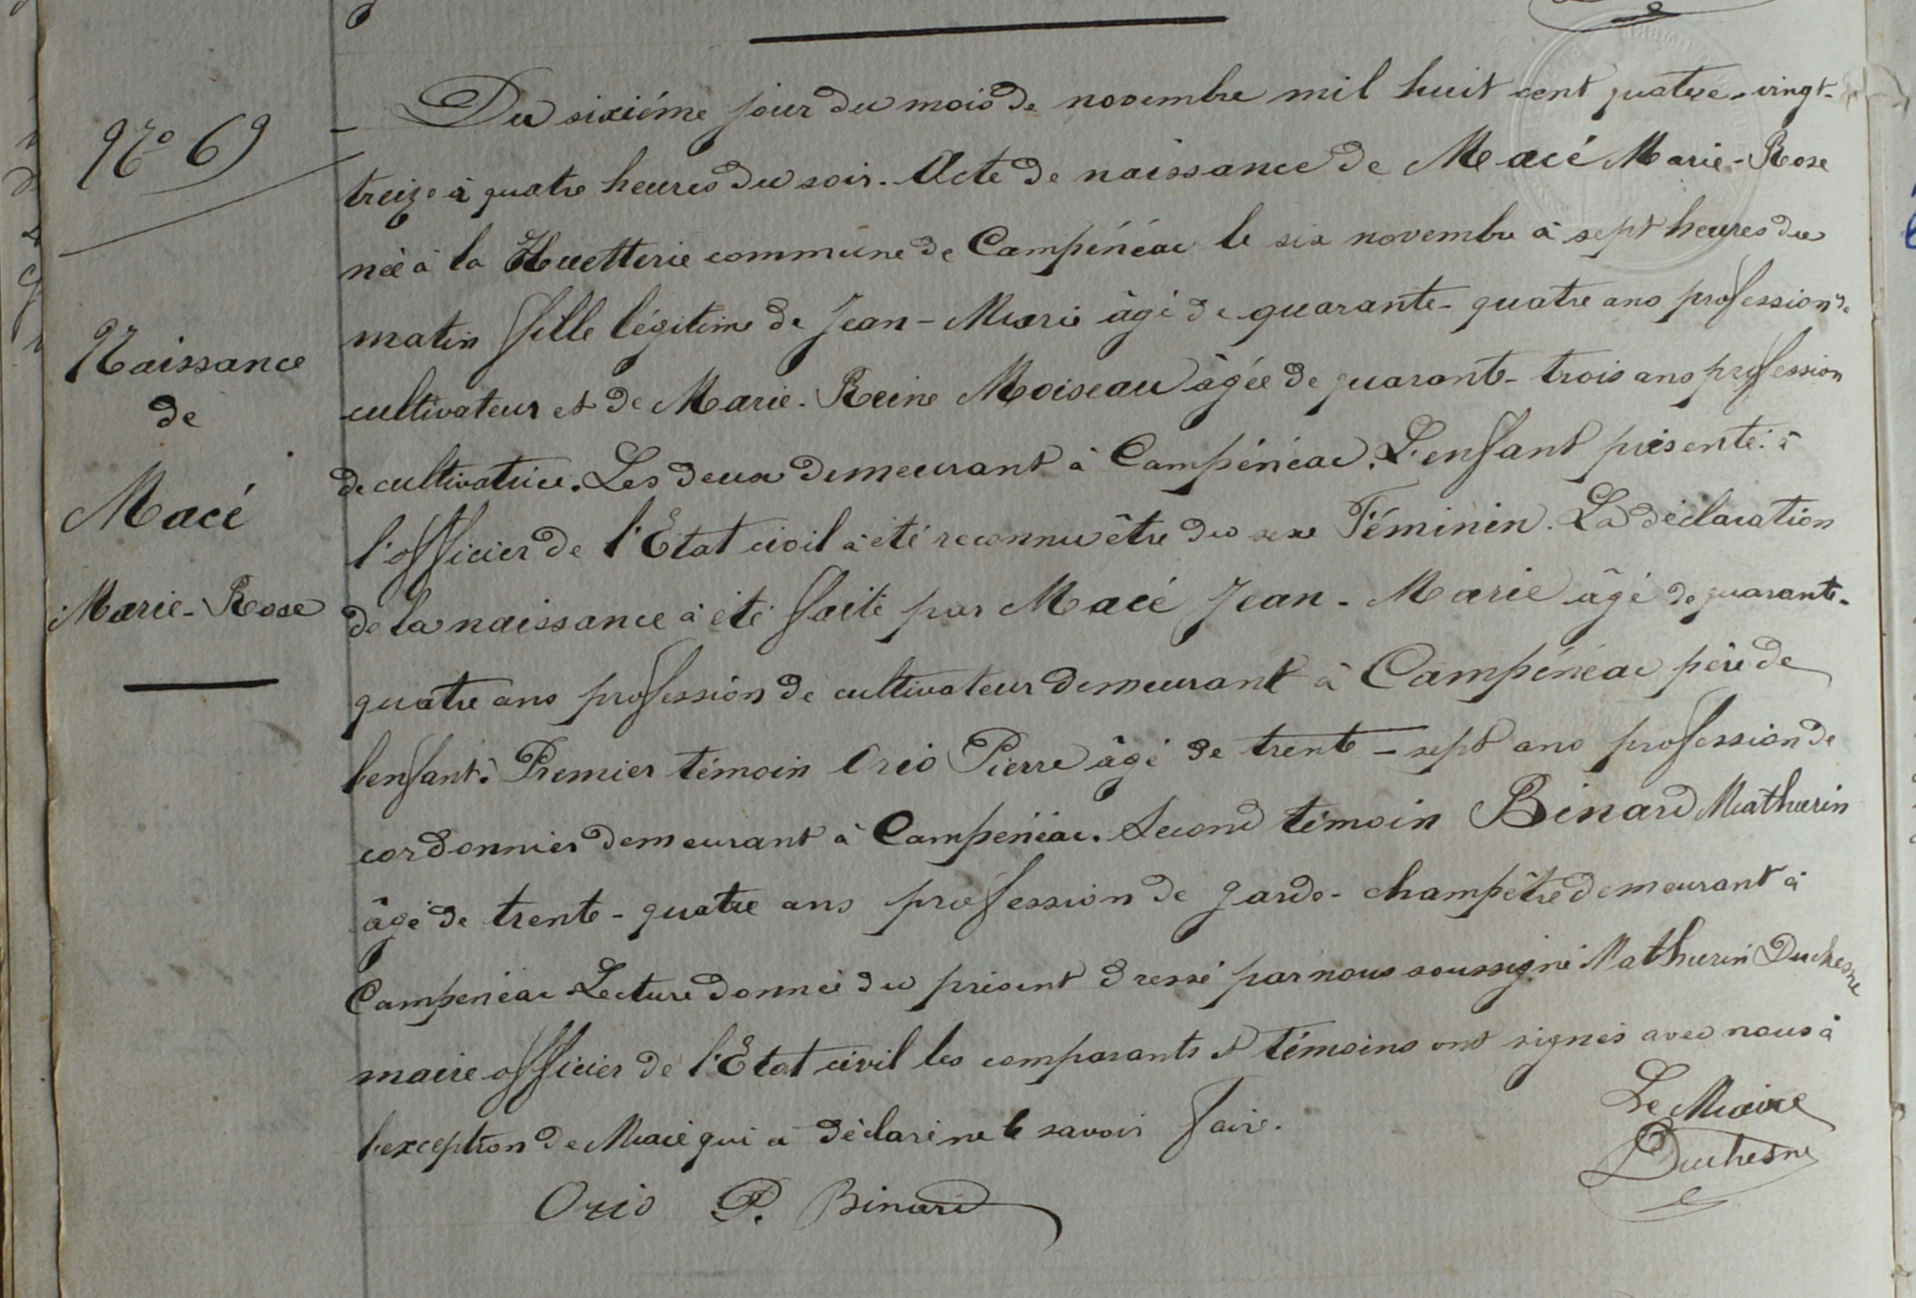 N° 69
Naissance
de
Macé
Marie-Rose
Du sixiéme jour du mois de novembre mil huit cent quatre-vingt-
treize à quatre heures du soir. Acte de naissance de Macé Marie-Rose
née à la Huetterie commune de Campénéac le six novembre à sept heures du
matin fille légitime de Jean-Marie âgé de quarante-quatre ans profession de
cultivateur et de Marie-Reine Moiseau âgée de quarante-trois ans profession
de cultivatrice. Les deux demeurant à Campénéac. L'enfant présenté à
l'officier de l'Etat civil a été reconnu être du sexe Féminin. La déclaration
de la naissance a été faite par Macé Jean-Marie âgé de quarante-
quatre ans profession de cultivateur demeurant à Campénéac père de
l'enfant. Premier témoin Orio Pierre âgé de trente-sept ans profession de
cordonnier demeurant à Campénéac. Second témoin Binard Mathurin
âgé de trente-quatre ans profession de garde-champêtre demeurant à
Campénéac Lecture donnée du présent dressé par nous soussigné Mathurin Duchesne
maire officier de l'Etat civil les comparants et témoins ont signés avec nous à
l'exception de Macé qui a déclaré ne le savoir faire.
Le Maire
Duchesne
Orio P. Binard